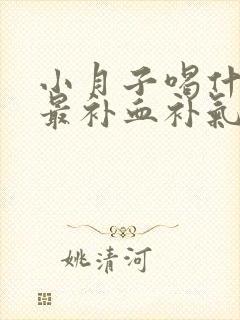 小月子喝什
最补血补氣
姚清河